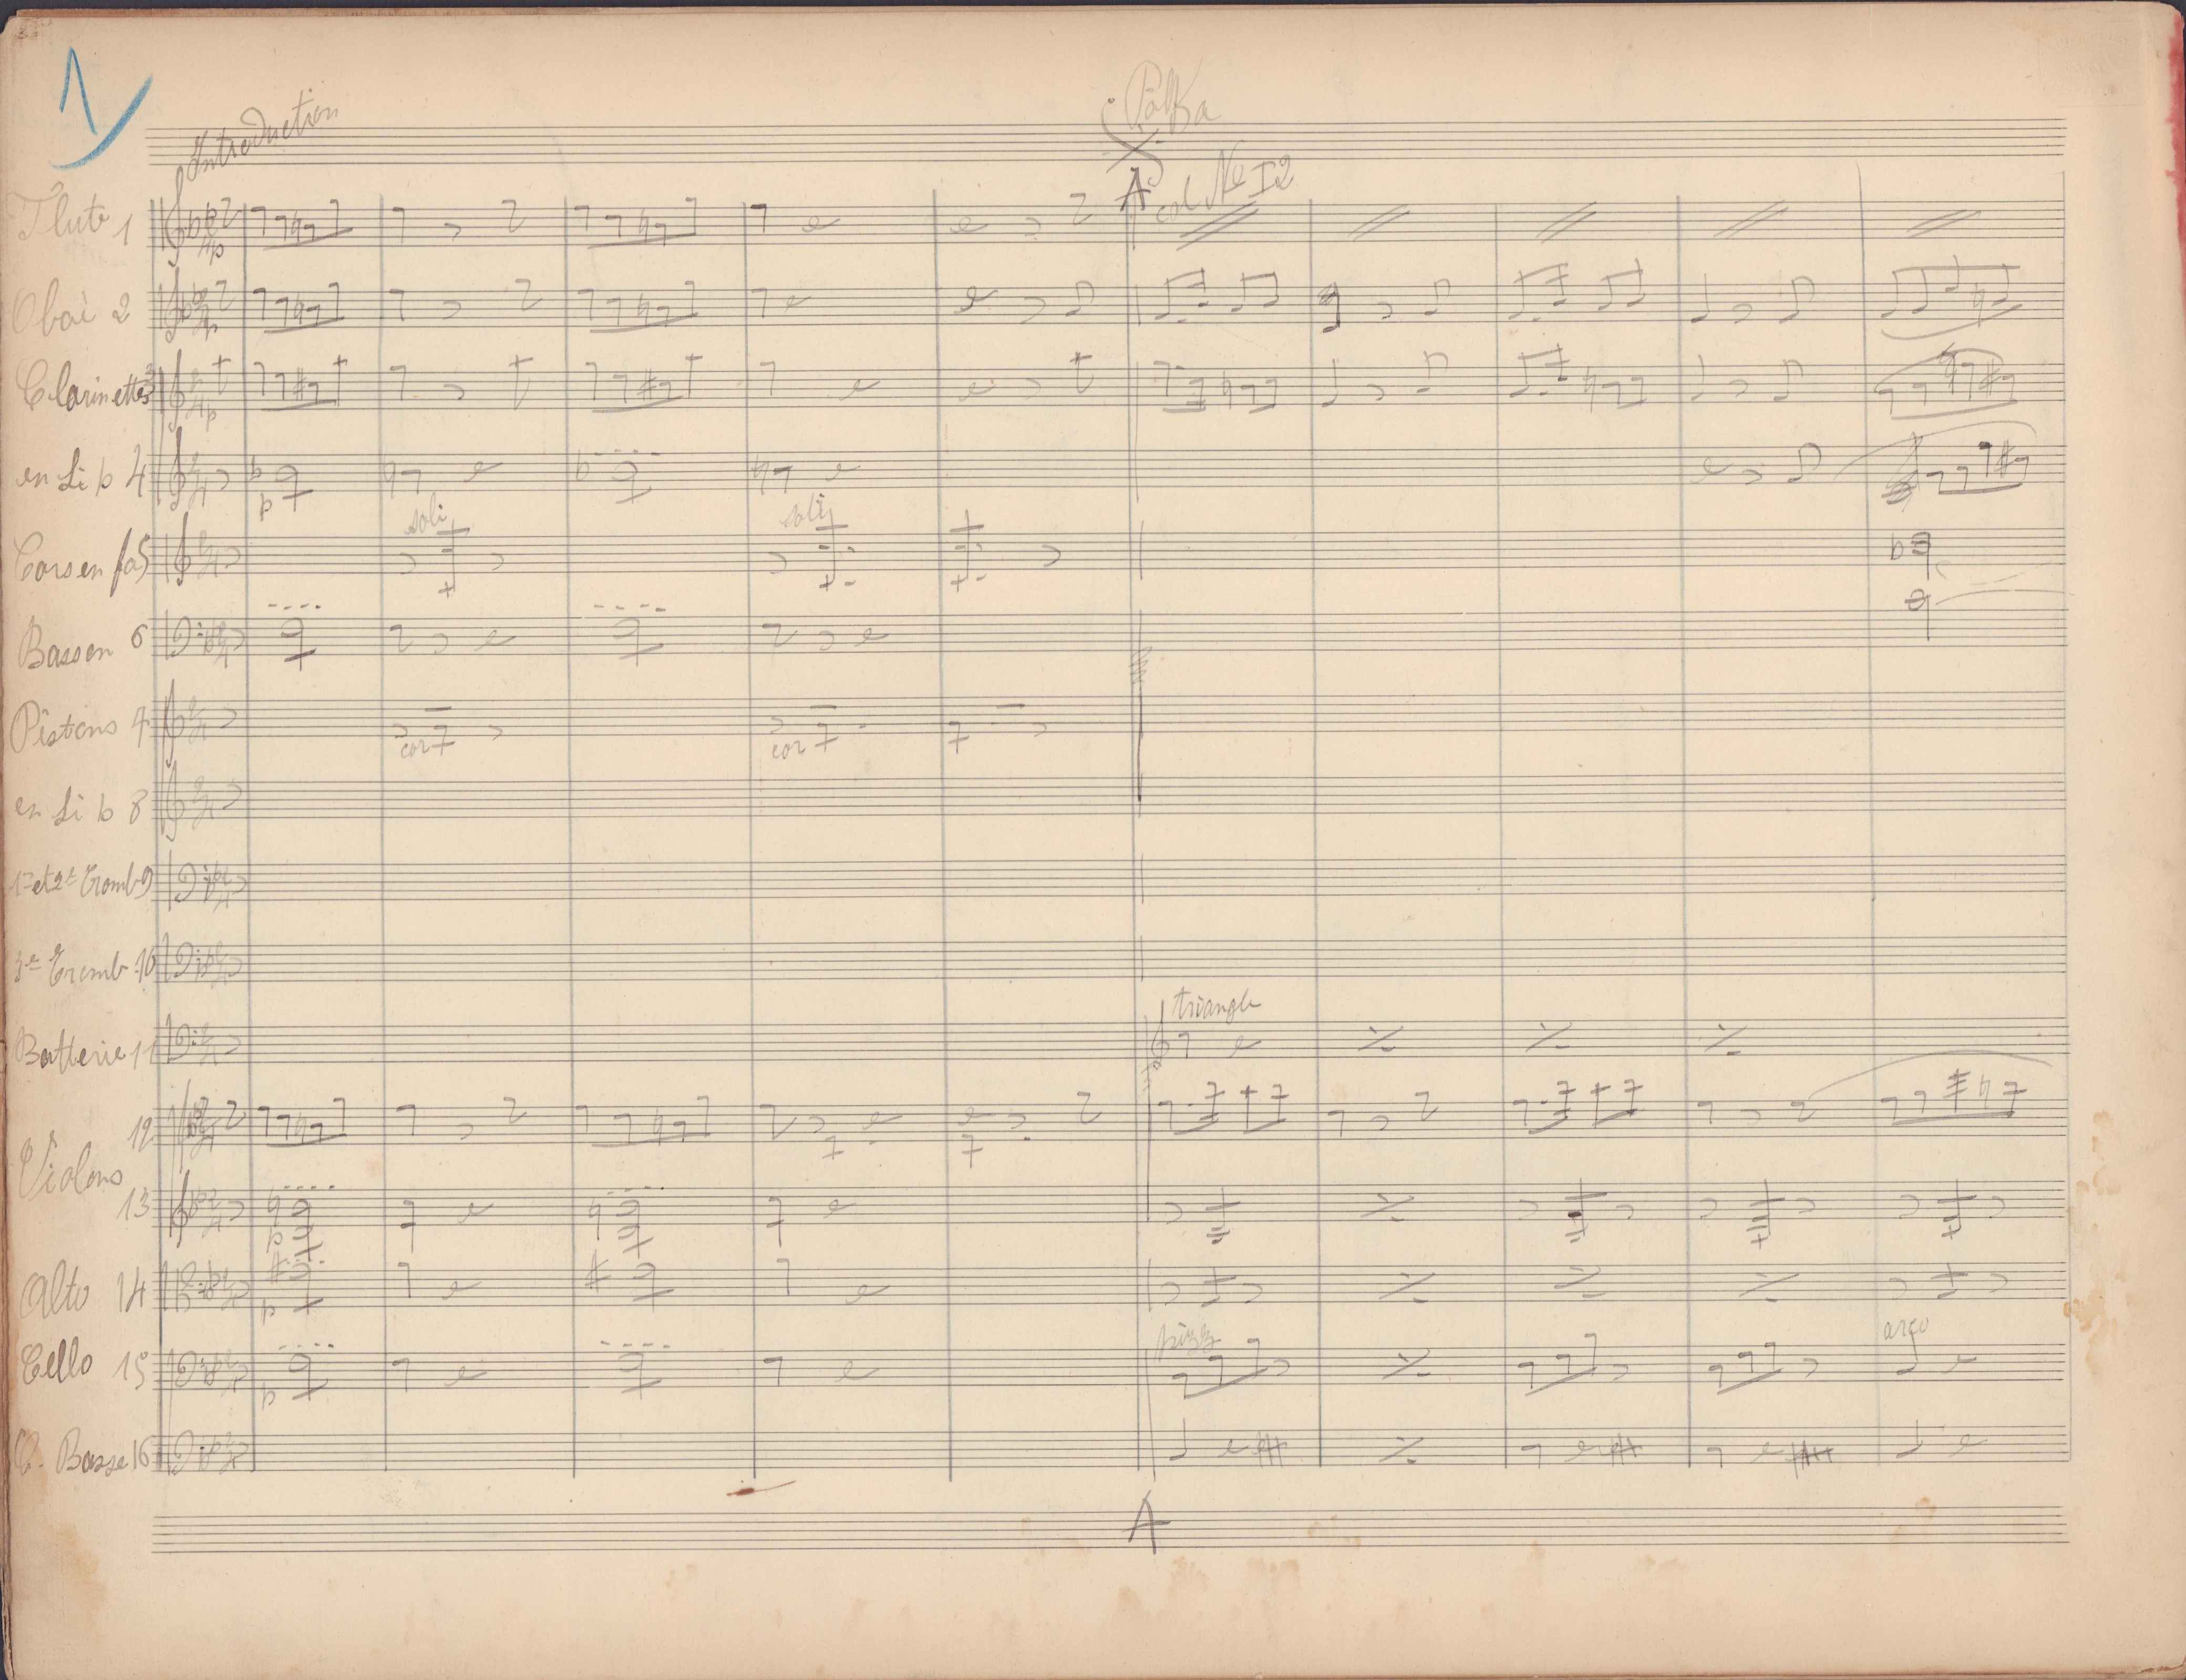 1
Introduction
Polka
A
col No 12
Flute 1
Oboè 2
Clarinettes 3
en Si b 4
soli
soli
Cors en fa 5
Basson 6
Pistons 7
cor
cor
en Si b 8
1er et 2e Tromb 9
3e Tromb 10
triangle
Batterie 11
12
Violons
13
Alto 14
pizz
arco
Cello 15
C. Basse 16
A